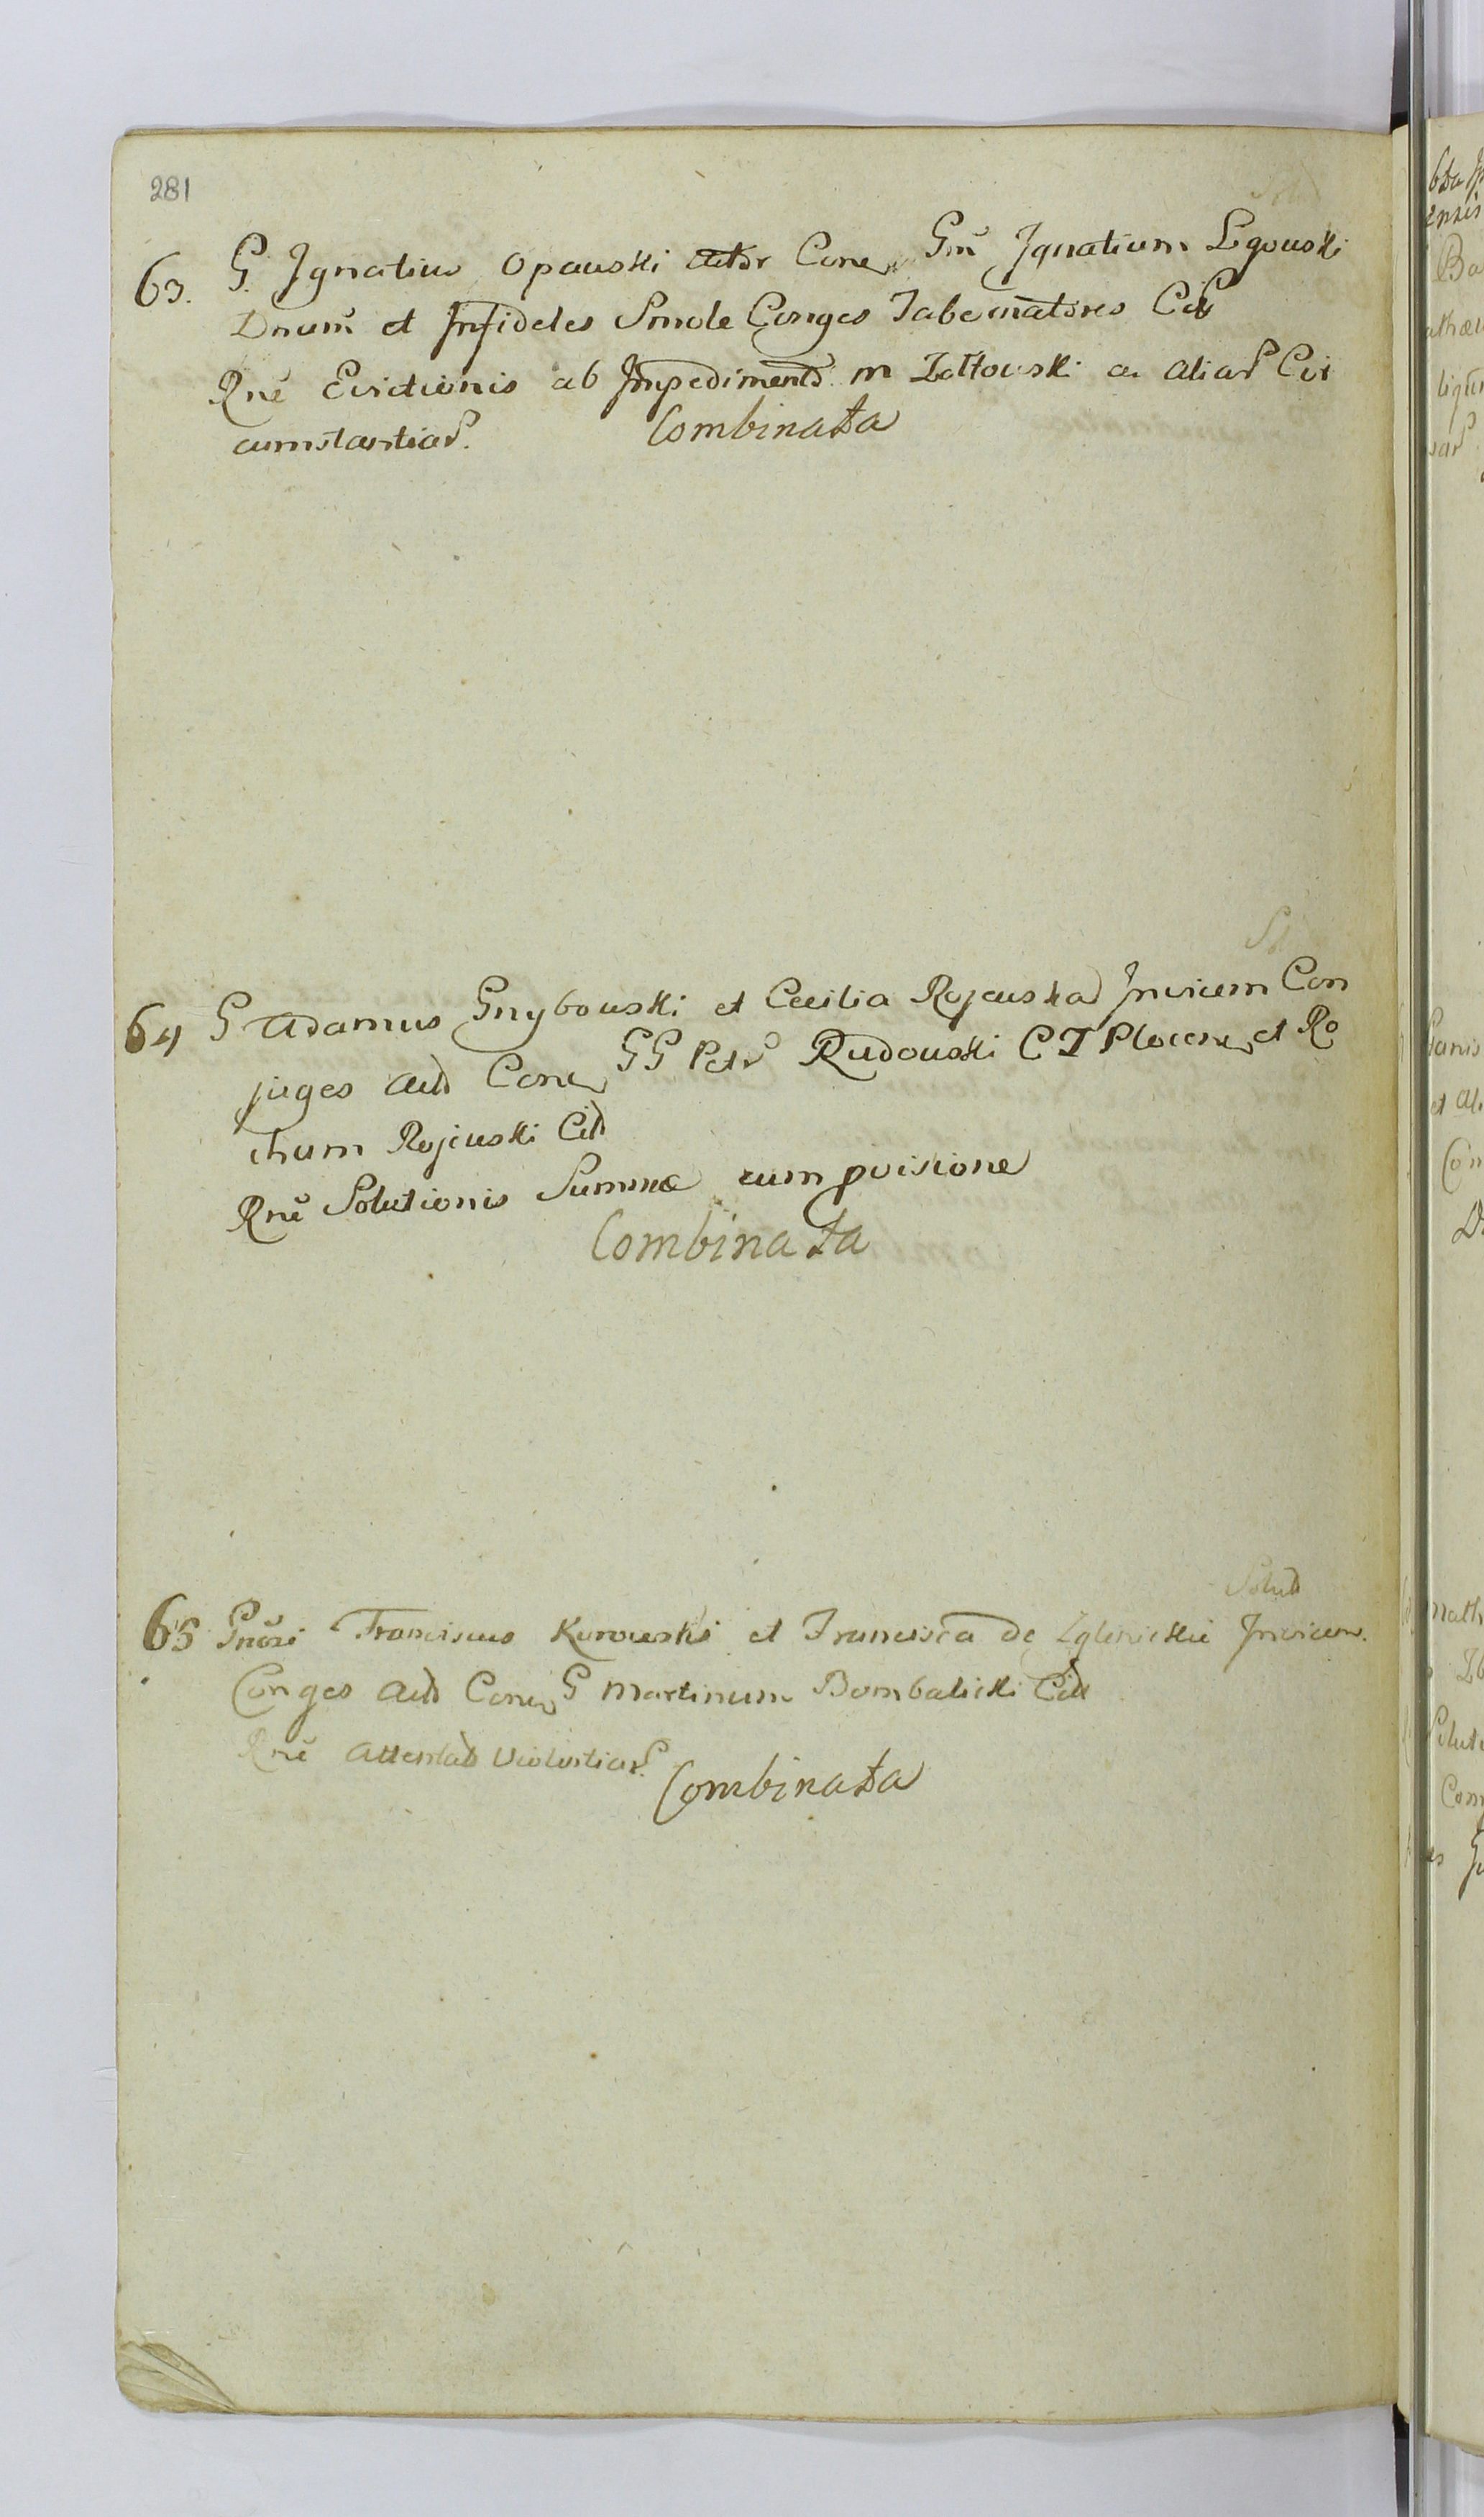 281
63. G. Ignatius Opauski Actor Cone Gm Ignatium Ligouski
Dnum et Infideles Smole Conges Tabernatores Cit
Rne Evictionis ab Impedimento m Zoltouski a aliar Cir
cumstantiar. Combinata
64 G Adamus Grzybouski et Cecilia Rojeuska Invicem Con
juges Act Cone GG Petr Rudouski C T Plocen et Ro
chum Rojeuski Cit
Rne Solutionis Summæ cum pvisione
Combinata
Solut
65 Gnosi Franciscus Kurouski et Francisca de Zglenickie Invicem
Conges Act Cone G Martinum Bombalicki Cit
Rne Attentat Violentiar.
Combinata